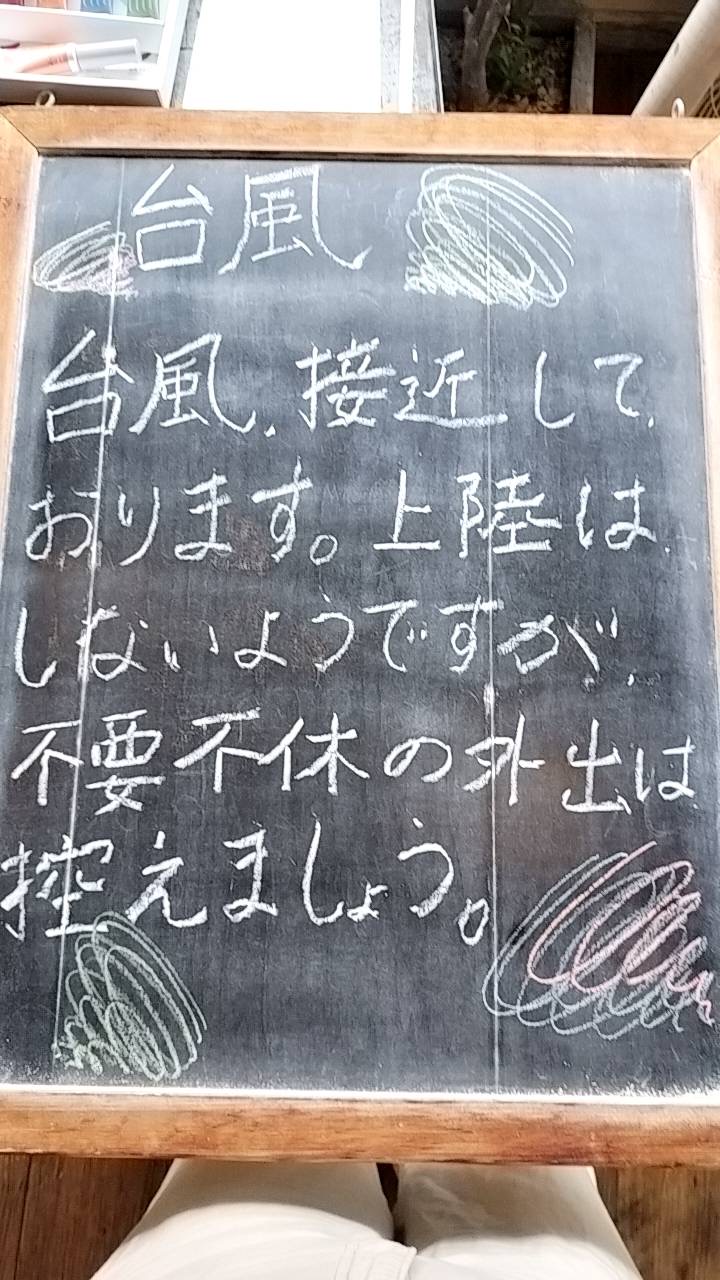 台風
台風、接近して
おります。上陸は
しないようですが、
不要不休の外出は
控えましょう。